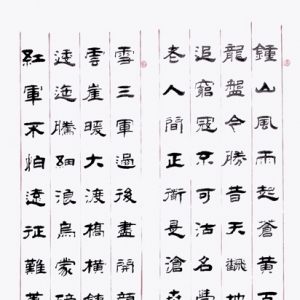 鍾山風雨起蒼黃百
龍盤今勝昔天翻地
追窮寇不可沽名學
老人間正衜是滄
雪三軍過後盡開顏
雲崖暖大渡橋橫鐵
逶迤騰細浪烏蒙磅
紅軍不怕遠征難萬